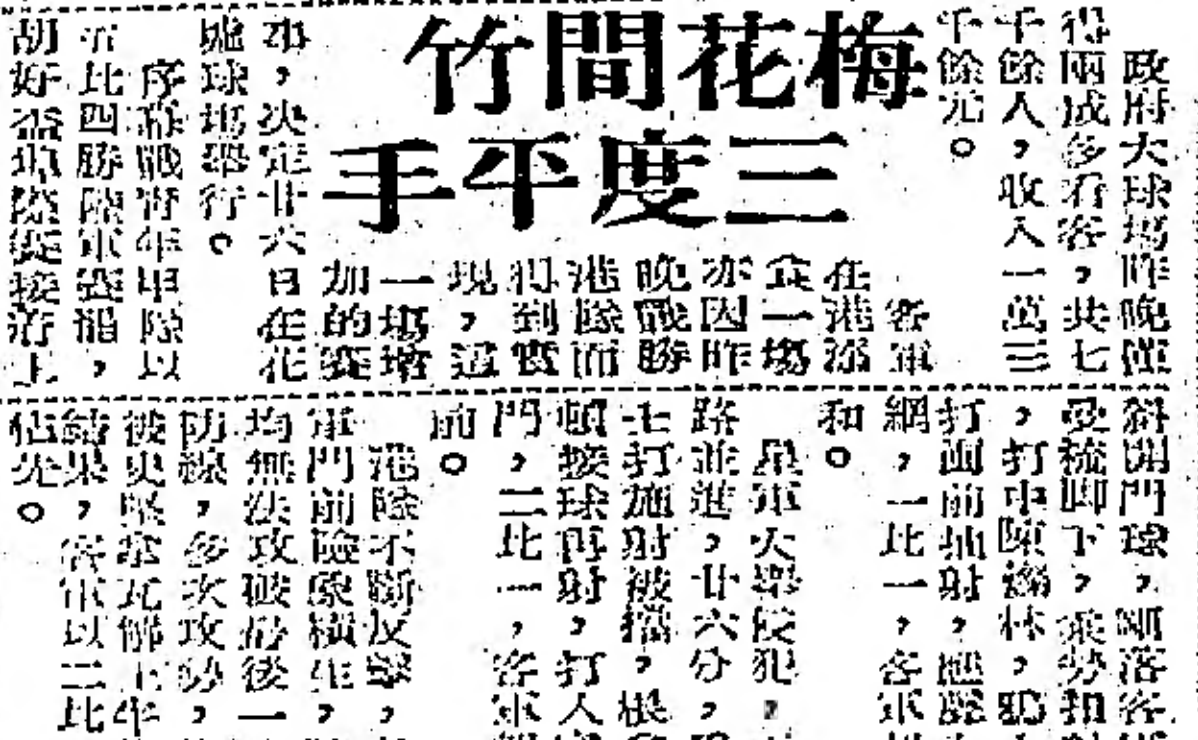 梅花間竹
三度平手
政府大球場昨晚僅
得兩成多看客，共七
千餘人，收入一萬三
千餘元。
客軍
在港添
一場
亦因昨
晚戰勝
港隊而
得到實
現，這
一場增
加的賽
事，決定廿六日在花
墟球場舉行。
序幕戰青年甲隊以
五比四勝陸軍
胡好盃埠際
斜開門球，剛落客
腳下，乘勢扣
，打中陳林，
打面前抽射，應聲
網，一比一，客軍
和。
星軍大舉侵犯，
路並進，廿六分，
七打施射被擋，根
頓接球再射，打入
門，二比一，客軍
前。
港隊不斷反擊，
軍門前險象橫生，
均無法攻破最後一
防線，多次攻勢，
被史堅拿瓦解上半
結果，客軍以二比
佔先。